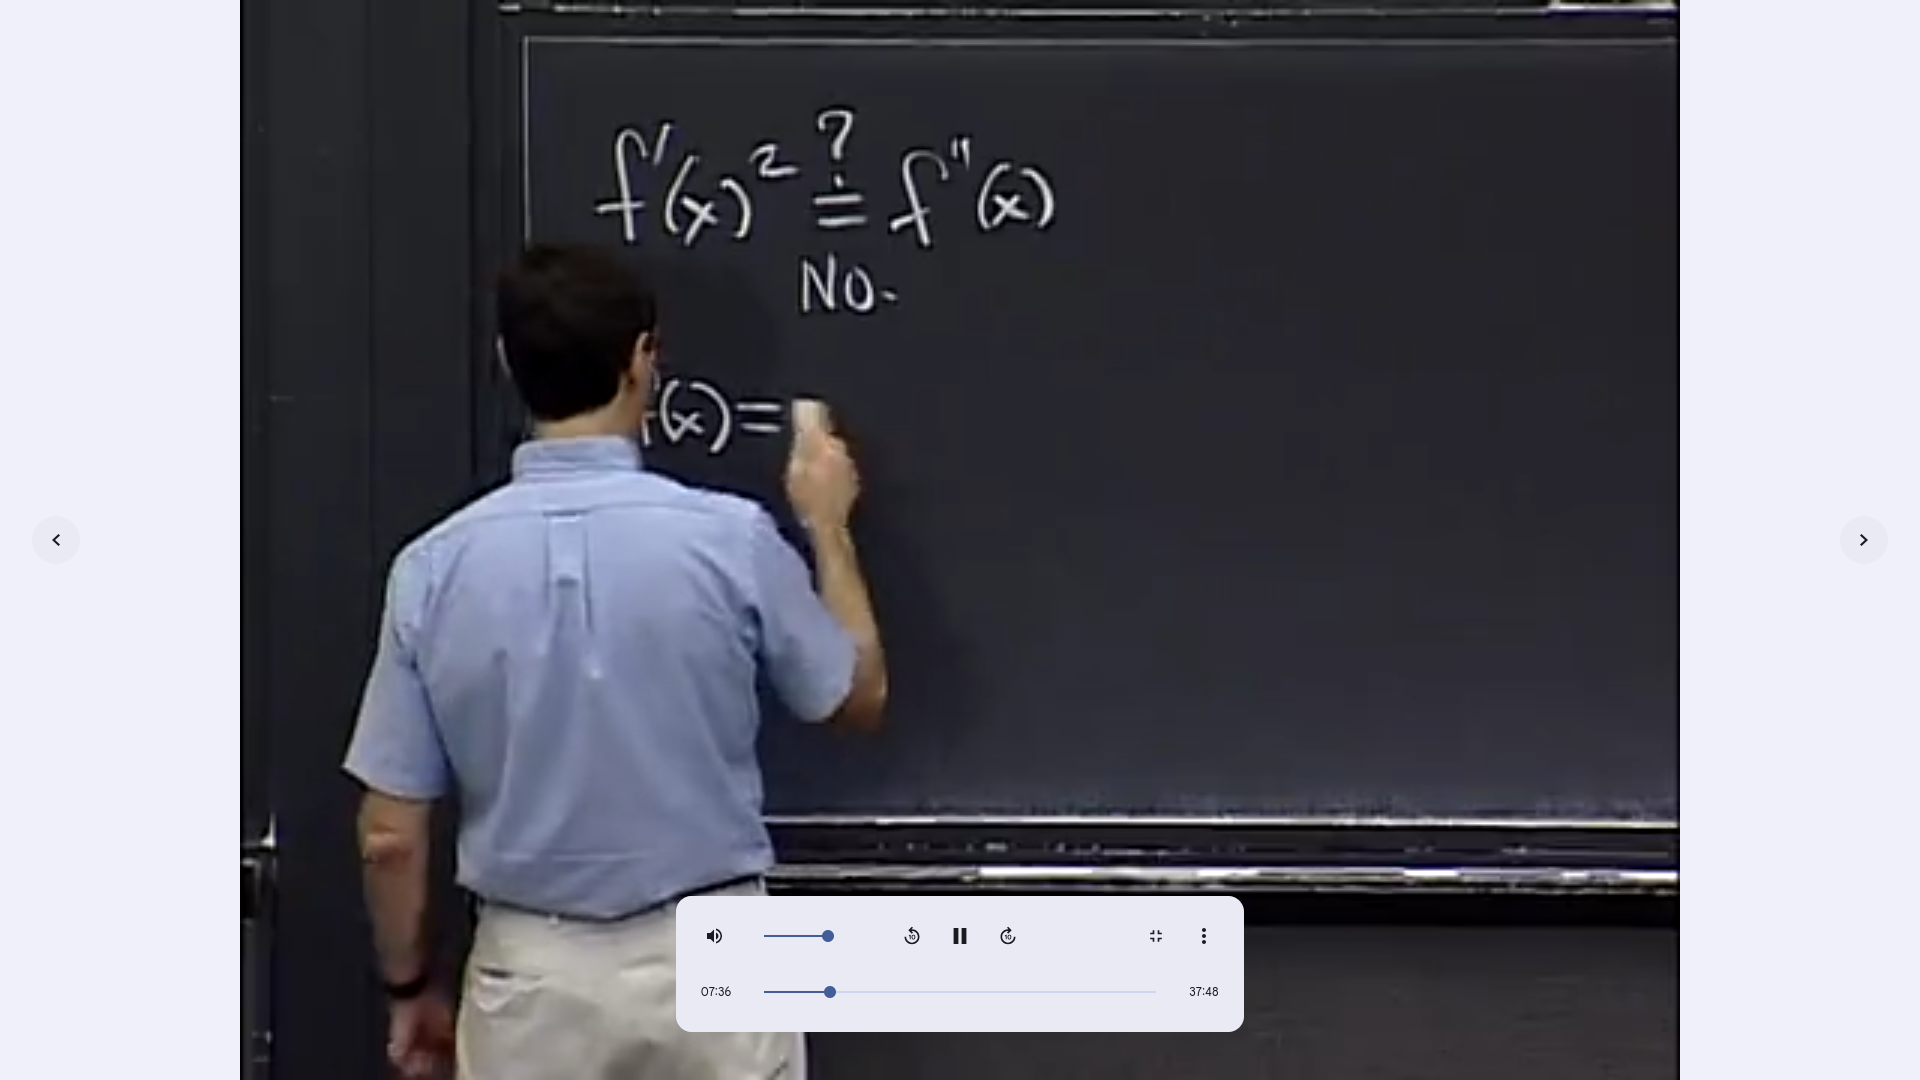 f'(x)² ≟ f''(x)
No.
(x) =
10 10
07:36 37:48